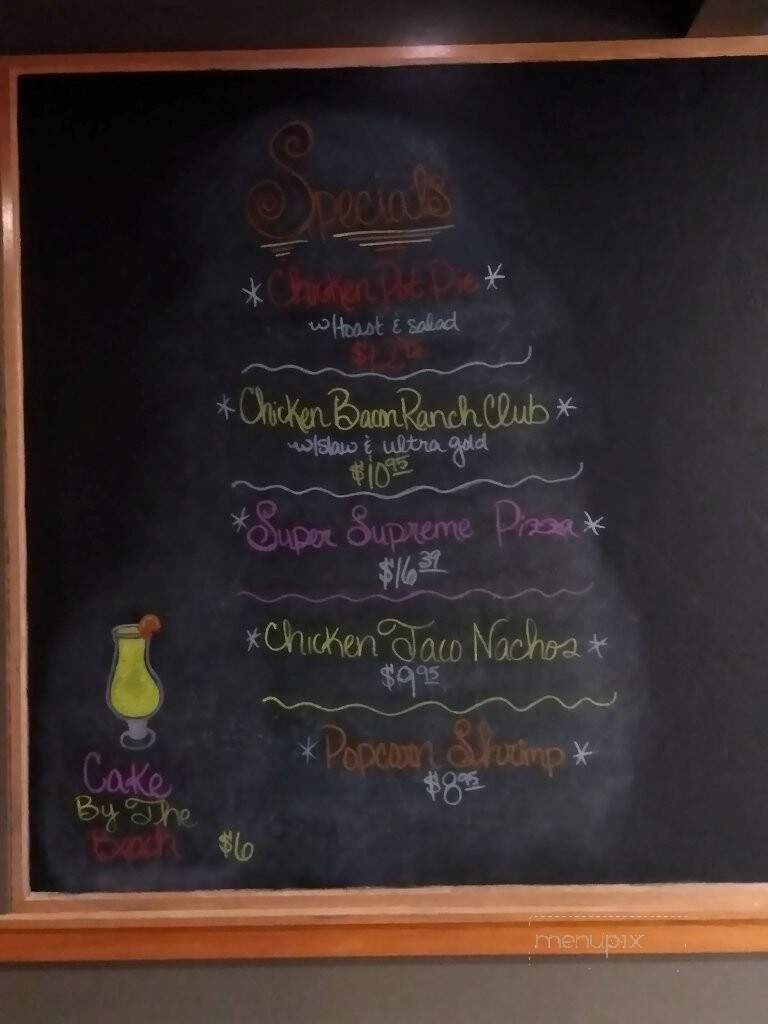 Specials
* Chicken Pot Pie *
w/toast & salad
* Chicken Bacon Ranch Club *
w/slaw & ultra gold
$10.95
* Super Supreme Pizza *
$16.39
* Chicken Taco Nachos *
$9.95
* Popcorn Shrimp *
$8.95
Cake
By The
Beach $6
menupix